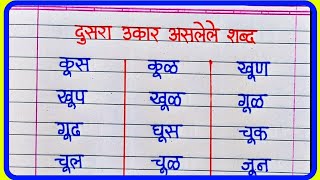 दुसरा उकार असलेले शब्द
कूस कूळ खूण
खूप खूळ गूळ
गूढ घूस चूक
चूल चूळ जून